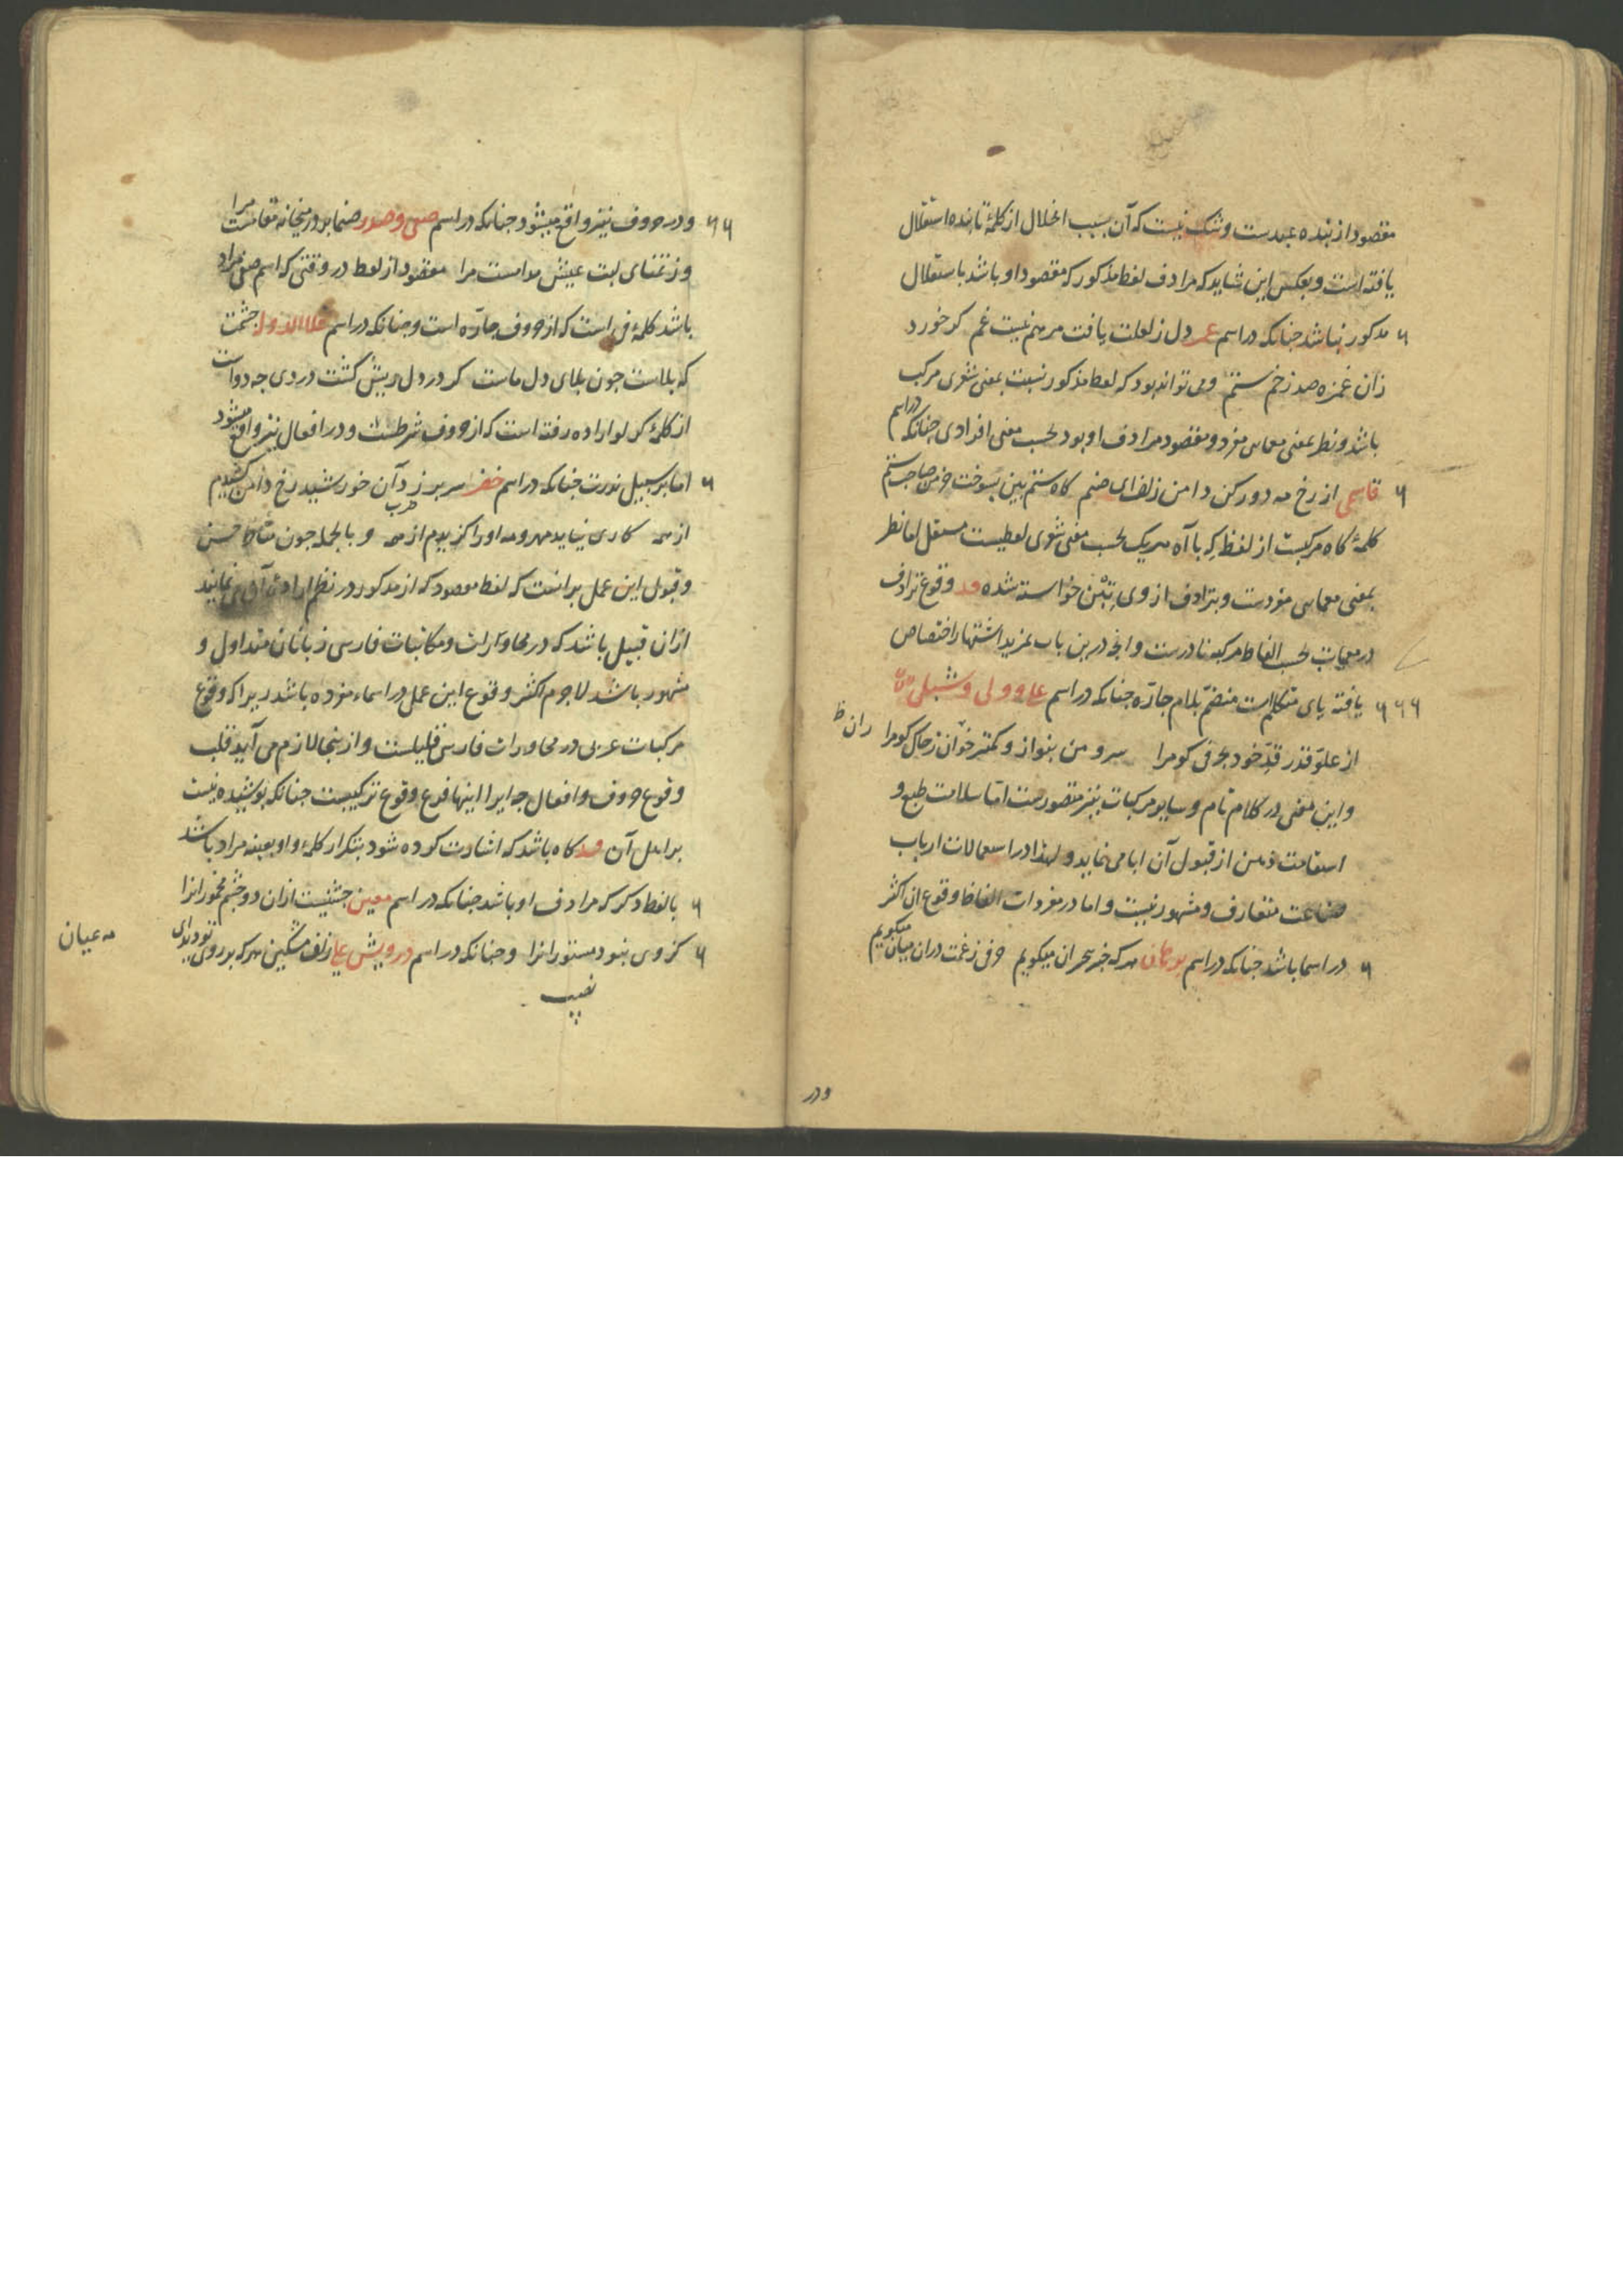 مقصود از بنده عبدست و شک نیست که آن بسبب اخلال از کلمهٔ تابنده استقلال
یافته است و بعکس این شاید که مرادف لفظ مذکور که مقصود او باشد باستقلال
مذکور نباشد جنانکه در اسم عمر دل ز لعلت یافت مرهم نیست غم کر خورد
زان غمزه صد زخم ستم و می تواند بود که لفظ مذکور نسبت بمعنی شعری مرکب
باشد و نظر بمعنی معمایی مفرد و مقصود مرادف او بود بحسب معنی افرادی جنانکه در اسم
قاسمی از رخ مه دور کن دامن زلف ای صنم کاه ستم بین بسوخت خرمن صاحب ستم
کلمهٔ کاه مرکبست از لفظ که با آه هریک بحسب معنی شعری لفظیست مستقل اما نظر
بمعنی معمایی مفردست و بترادف از وی تبن خواسته شده و قد وقوع ترادف
در معمیات بحسب الفاظ مرکبه نادرست و انجه درین باب بمزید اشتهار اختصاص
یافته یای متکلم است منضم بلام جاره جنانکه در اسم علی و ولی و شبلی
از علو قدر قد خود بحرفی کو مرا سرو من بنواز و کمتر خوان ز خاک کو مرا ران ظ
و این معنی در کلام تام و سایر مرکبات نیز متصورست اما سلامت طبع و
استقامت ذهن از قبول آن ابا می نماید و لهذا در استعمالات ارباب
صناعت متعارف و مشهور نیست و اما در مفردات الفاظ وقوع ان اکثر
در اسما باشد جنانکه در اسم هر که خبر بحر ان میکویم حرفی ز غمت دران میان میکویم
ودر
ودر حروف نیز واقع میشود جنانکه در اسم صفی و صدر صنما بر در میخانه مقامست مرا
وز تمنای لبت عیش مدامست مرا مقصود از لفظ در وقتی که اسم صفی مراد
باشد کلمهٔ فی است که از حروف جاره است و جنانکه در اسم علاالدوله جشمت
که بلاست جون بلای دل ماست کر در دل ریش کشت دردی جه دواست
از کلمهٔ کر لو اراده رفته است که از حروف شرطست و در افعال نیز واقع میشود
اما بر سبیل ندرت جنانکه در اسم خضر سر برزد آن خورشید رخ دامن کشیدم
از همه کاری نیاید ضرب مهر و مه او را کزیدم از همه و بالجمله جون مناط حسن
و قبول این عمل برانست که لفظ مقصود که از مذکور در نظم اراده آن می نمایند
ازان قبیل باشد که در محاورات و مکاتبات فارسی زبانان متداول و
مشهور باشد لاجرم اکثر وقوع این عمل در اسماء مفرده باشد زیرا که وقوع
مرکبات عربی در محاورات فارسی قلیلست و ازینجا لازم می آید قلت
وقوع حروف و افعال جه ایراد اینها فرع وقوع ترکیبست جنانکه پوشیده نیست
بر اهل آن و قد کاه باشد که اشارت کرده شود بتکرار کلمه و او بعینه مراد باشد
یا لفظ دکر که مرادف او باشد جنانکه در اسم معین جشنیست ازان دو جشم مخمور انرا
کز وی نبود مستور انرا و جنانکه در اسم درویش علی زلف مشکین هر که بر روی تو دید ای
مه عیان
نصیب